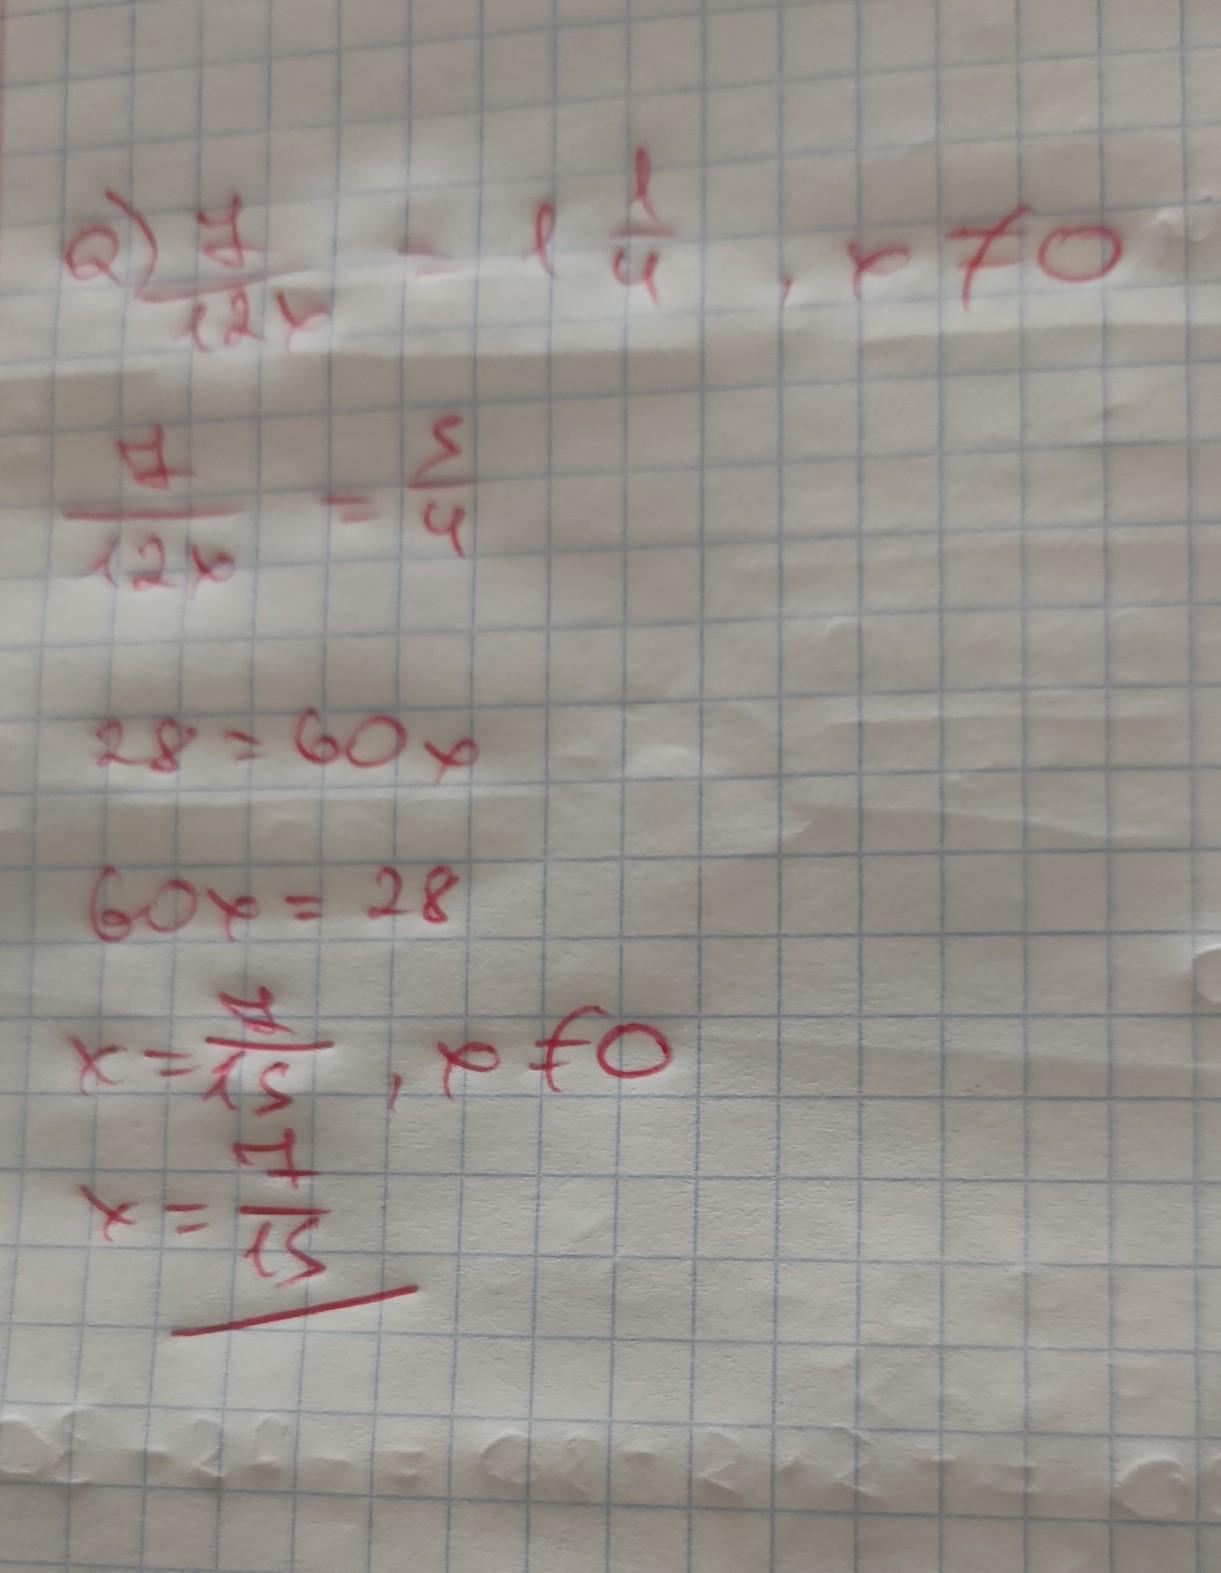 a) 7/12x = 1 1/4 , x ≠ 0
7/12x = 5/4
28 = 60x
60x = 28
x = 7/15 , x ≠ 0
x = 7/15